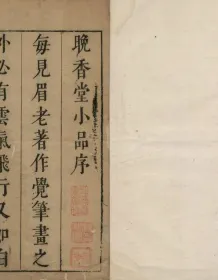 晚香堂小品序
每見眉老著作覺筆畫之
外必有雲氣飛行又如自